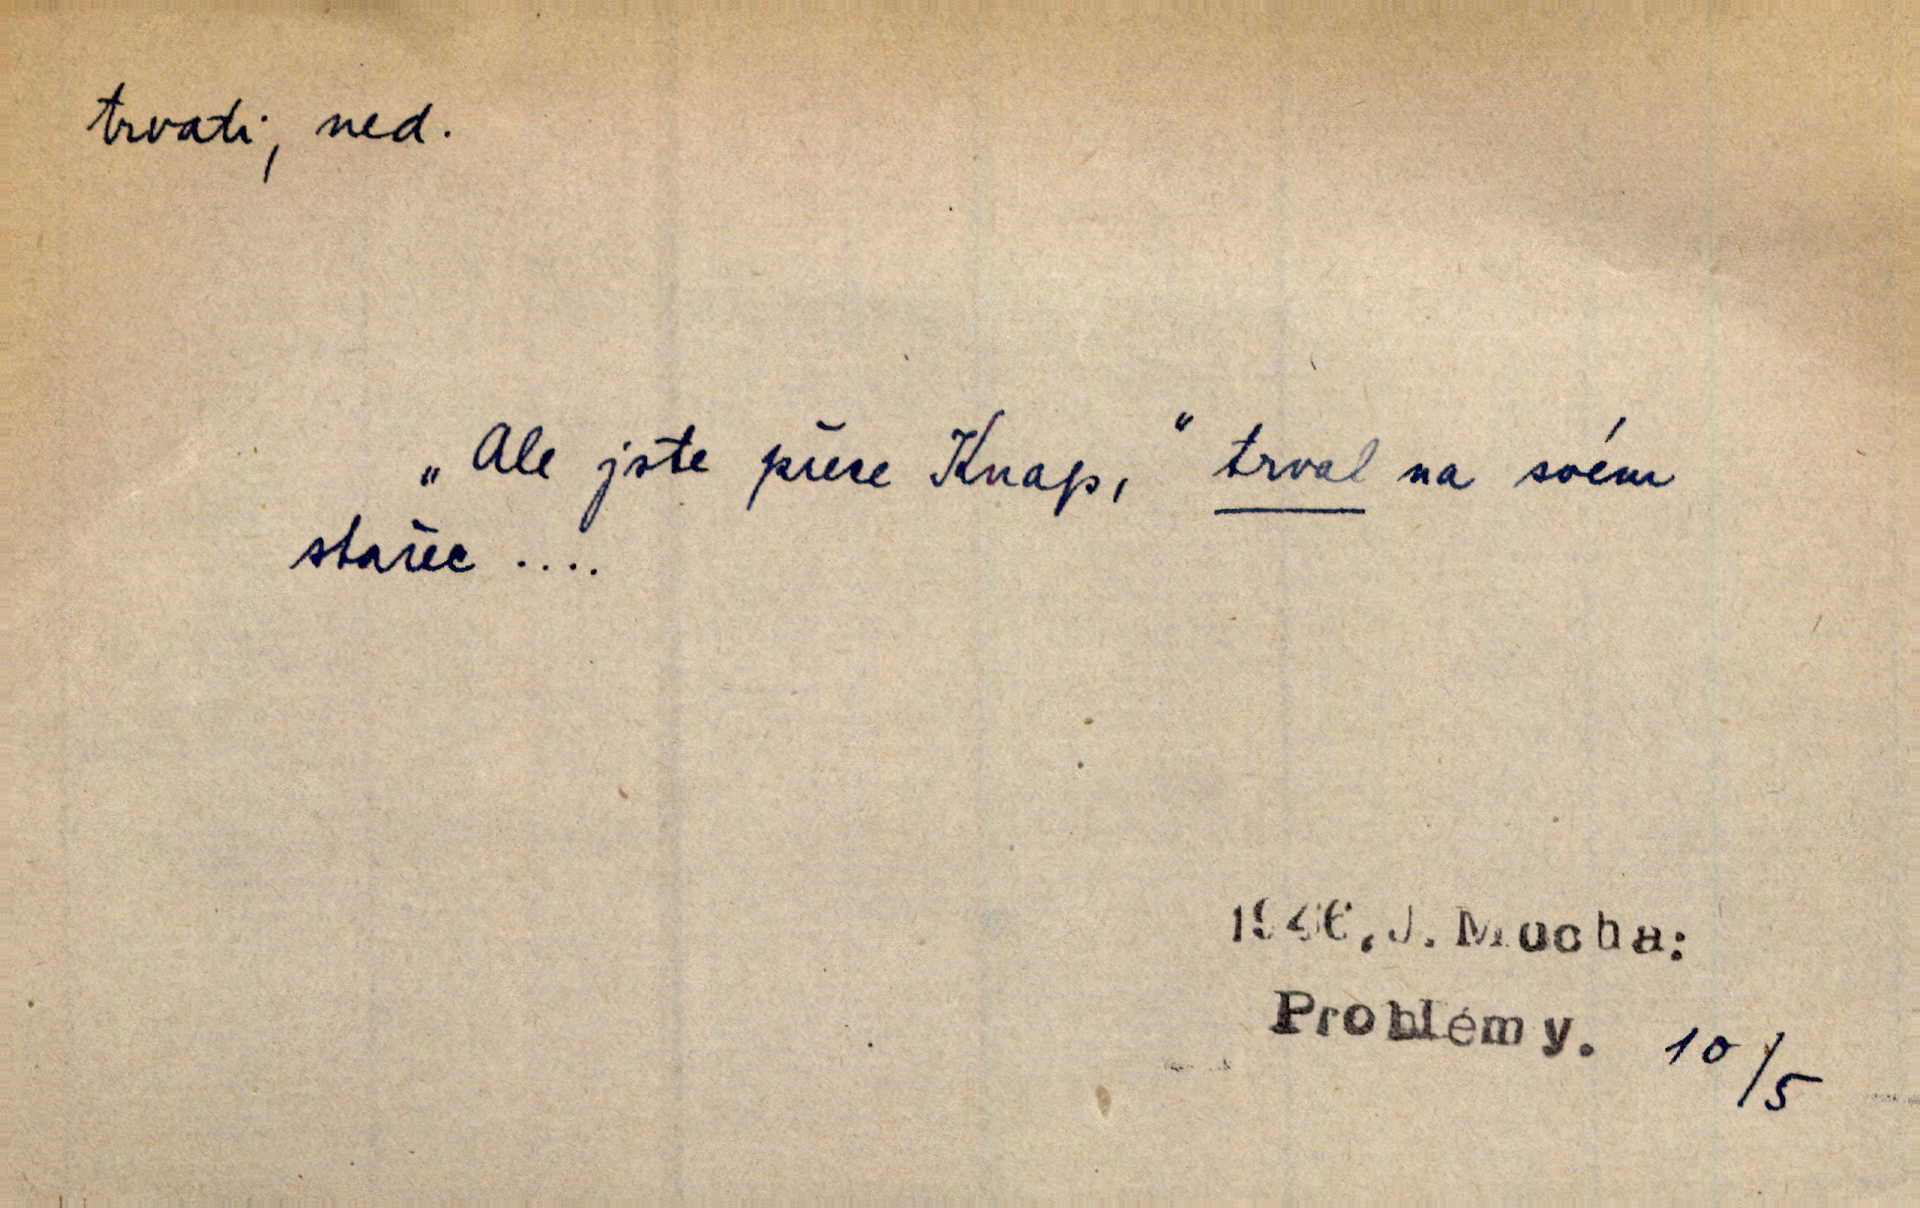 trvati, ned.
„Ale jste přece Knap,“ trval na svém
stařec ....
1946, J. Mucha:
Problémy. 10/5